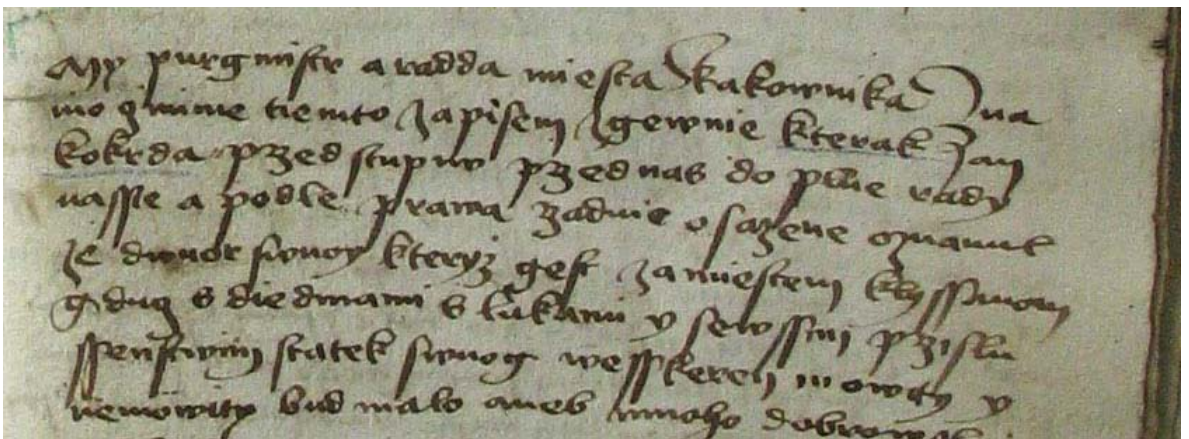 My purgmistr a radda miesta Rakownika Zna
mo czinime tiemto zapisem zgewnie kterak Jan
kokrda przedstupiw przed nas do plne rady
nassie a podle prawa zadnie osazene oznamil
ze dwuor swuoy kteryz gest za miestem k
s diedinami s lukami y sewssim przislu
ssenstwim statek swuog wesskeren mowity y
nemowity bud malo aneb mnoho dobrow